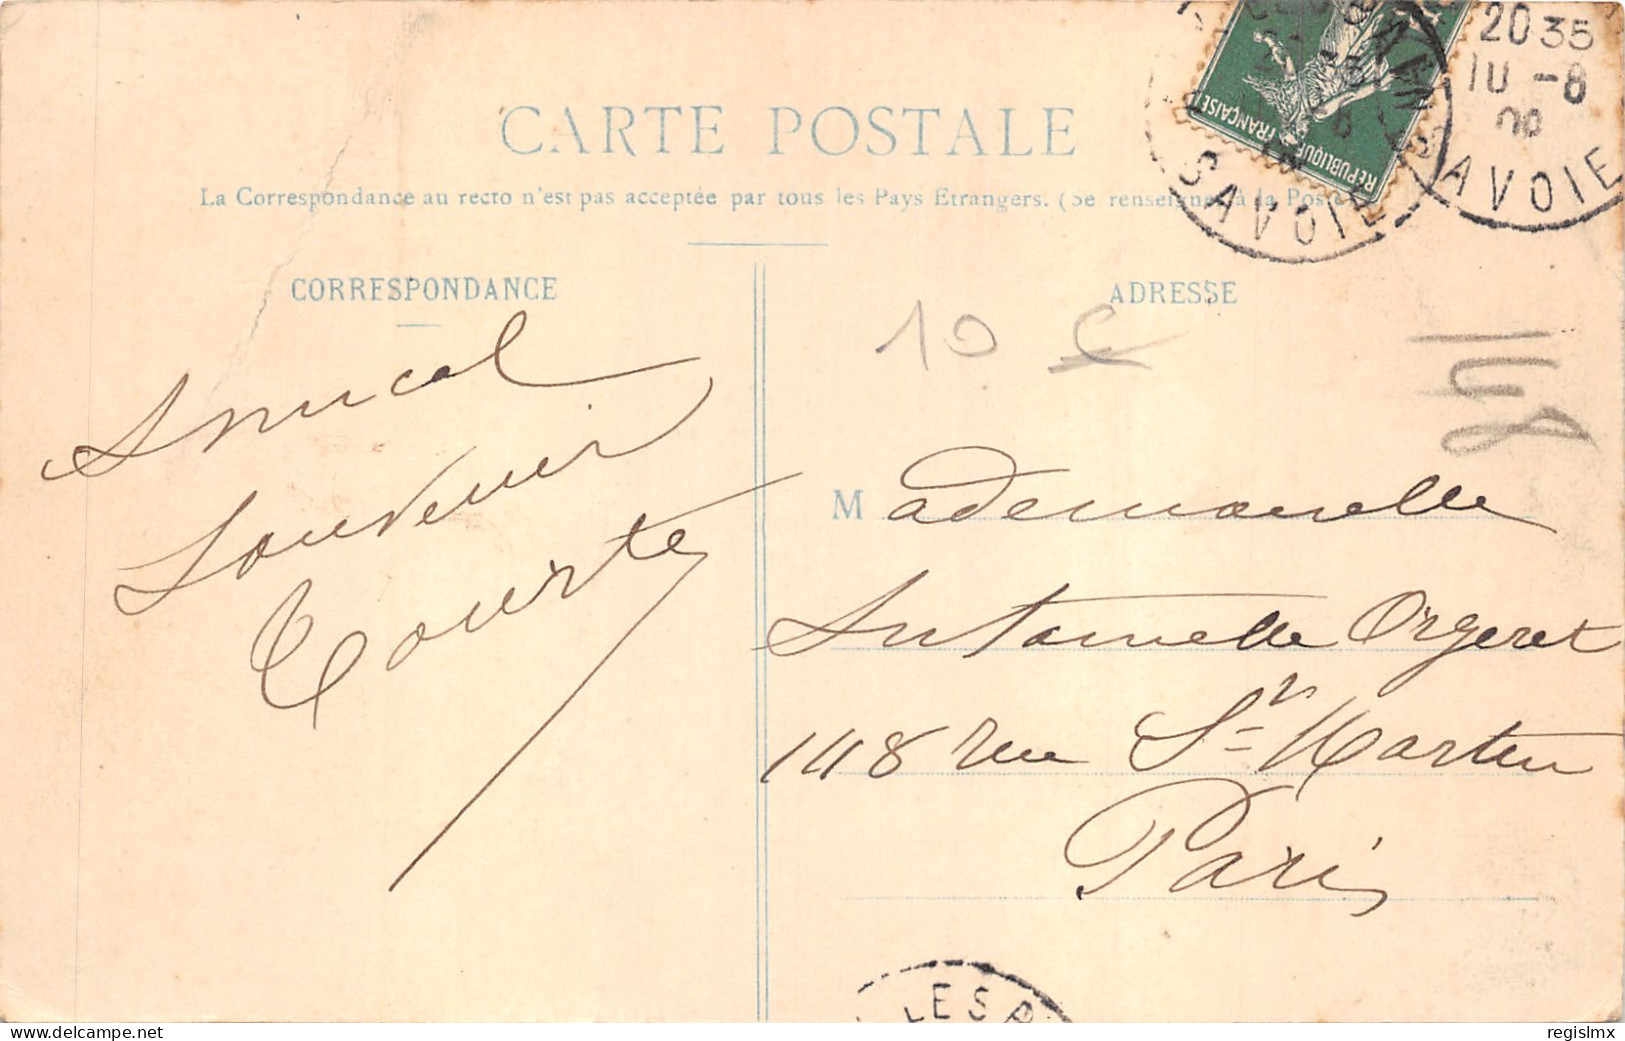 CARTE POSTALE
La Correspondance au recto n'est pas acceptée par tous les Pays Etrangers. (Se renseigner à la Poste)
CORRESPONDANCE
Amical
Souvenir
Courte
ADRESSE
10 €
148
Mademoiselle
Antoinette Orgeret
148 rue St Martin
Paris
RÉPUBLIQUE FRANÇAISE
SAVOIE
20 35
10 - 8
SAVOIE
LES
delcampe.net
regislmx